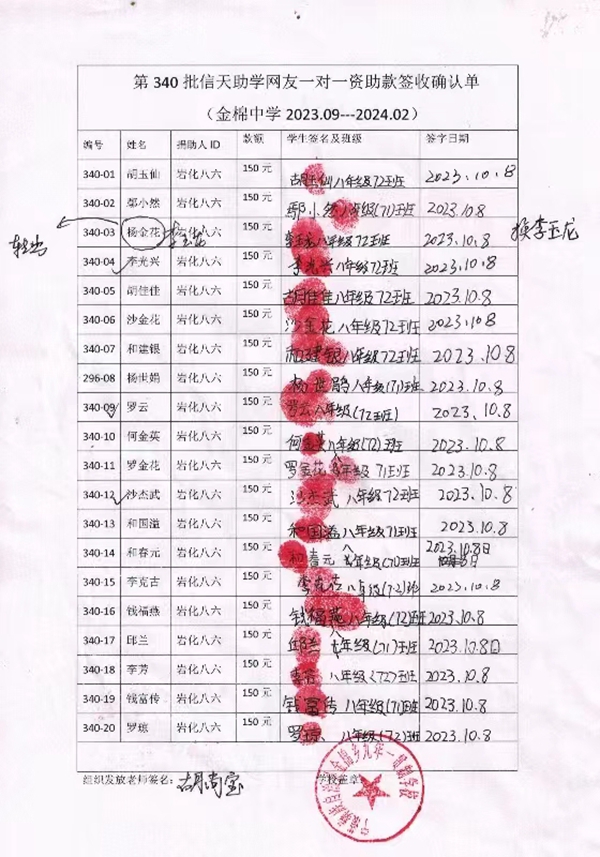 第 340 批信天助学网友一对一资助款签收确认单
（金棉中学 2023.09---2024.02）
编号 姓名 捐助人 ID 款额 学生签名及班级 签字日期
340-01 胡玉仙 岩化八六 150 元 胡玉仙 八年级72班 2023.10.8
340-02 鄢小然 岩化八六 150 元 鄢小然 八年级(71)班 2023.10.8
转出 340-03 杨金花 李玉龙 岩化八六 150 元 李玉龙 八年级72班 2023.10.8 换李玉龙
340-04 李光兴 岩化八六 150 元 李光兴 八年级72班 2023.10.8
340-05 胡佳佳 岩化八六 150 元 胡佳佳 八年级72班 2023.10.8
340-06 沙金花 岩化八六 150 元 沙金花 八年级72班 2023.10.8
340-07 和建银 岩化八六 150 元 和建银 八年级72班 2023.10.8
296-08 杨世娟 岩化八六 150 元 杨世鹃 八年级(71)班 2023.10.8
340-09 罗云 岩化八六 150 元 罗云 八年级(72班) 2023.10.8
340-10 何金英 岩化八六 150 元 何金英 八年级(72)班 2023.10.8
340-11 罗金花 岩化八六 150 元 罗金花 八年级 71班 2023.10.8
340-12 沙杰武 岩化八六 150 元 沙杰武 八年级72班 2023.10.8
340-13 和国溢 岩化八六 150 元 和国溢 八年级71班 2023.10.8
340-14 和春元 岩化八六 150 元 和春元 八年级(71)班 2023.10.8日
340-15 李克古 岩化八六 150 元 李克古 八年级(72)班 2023.10.8
340-16 钱福燕 岩化八六 150 元 钱福燕 八年级(72)班 2023.10.8
340-17 邱兰 岩化八六 150 元 邱兰 八年级(71)班 2023.10.8日
340-18 李芳 岩化八六 150 元 李芳 八年级(72)班 2023.10.8
340-19 钱富传 岩化八六 150 元 钱富传 八年级(71)班 2023.10.8
340-20 罗琼 岩化八六 150 元 罗琼 八年级(72)班 2023.10.8
组织发放老师签名： 胡尚宝 学校盖章